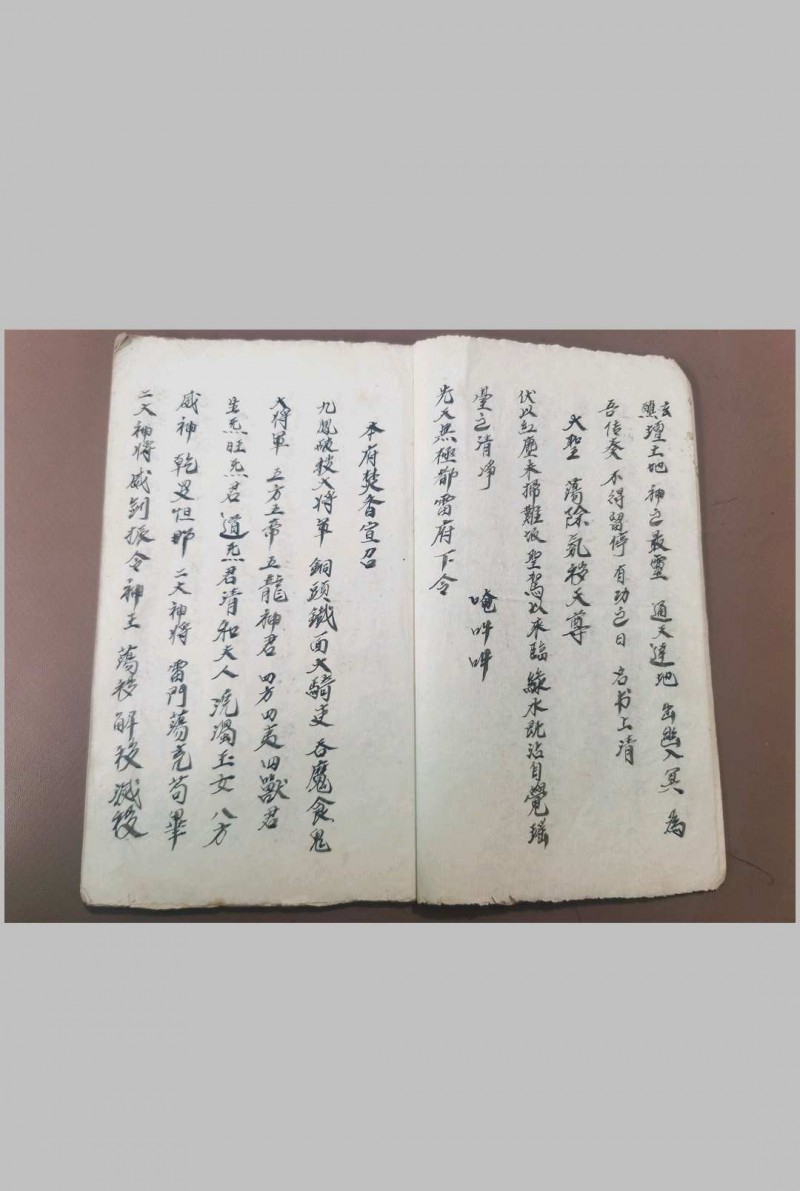 玄
醮壇土地 神之最靈 通天達地 出幽入冥 為
吾传奏 不得留停 有功之日 名书上清
大聖 蕩除氛穢天尊
伏以紅塵未掃難城聖駕以來臨 綠水既沾自覺瑤
壇之清净
唵吽吽
先天無極都雷府下令
本府焚香宣召
九鳳破穢大將軍 銅頭鐵面大騎吏 吞魔食鬼
大將軍 五方五帝五龍神君 四方四夷四獸君
生炁旺炁君 道炁君清和夫人 洗濁玉女 八方
威神 乾罡怛那 二大神將 雷門蕩兇苟畢
二大神将威剑振令神王 蕩穢解穢滅穢